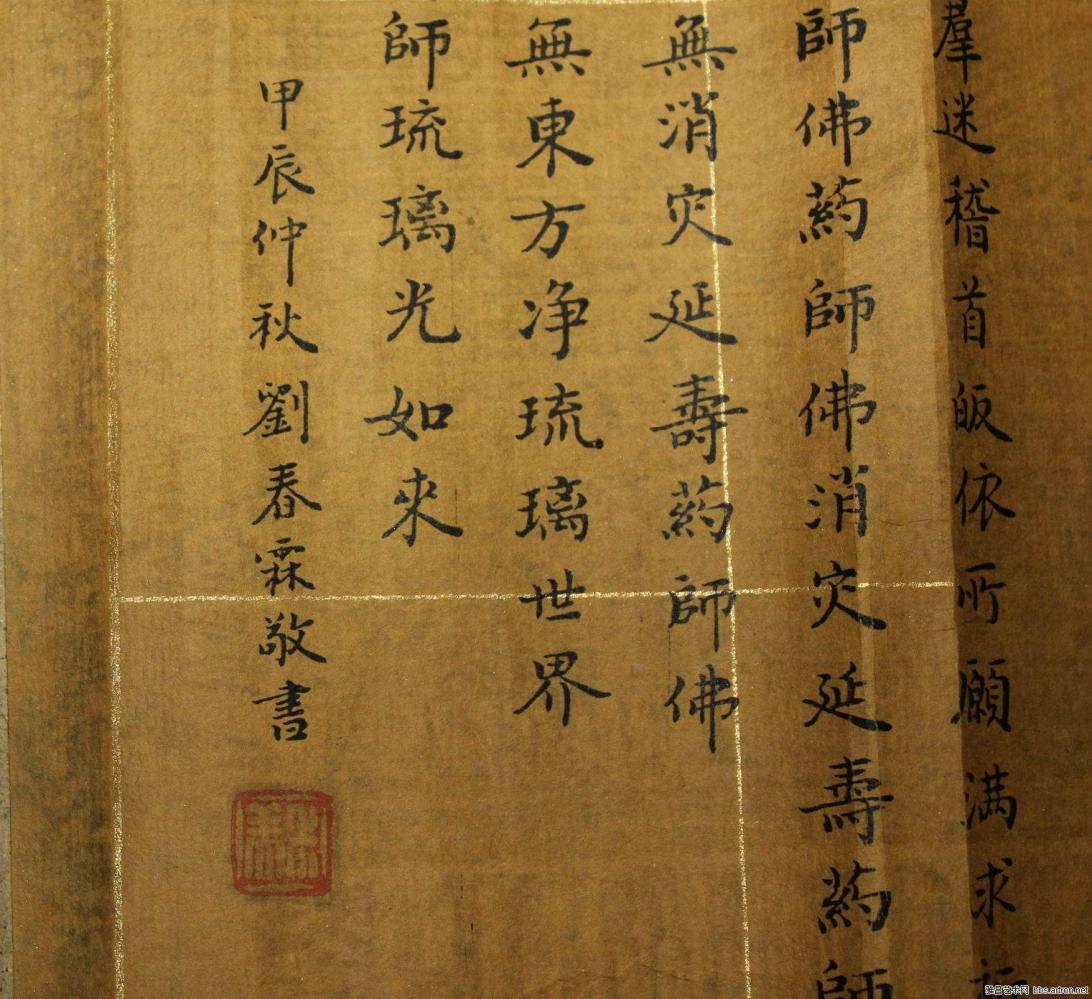 羣迷稽首皈依所願滿求
師佛葯師師佛消灾延壽葯師
無消灾延壽葯師佛
無東方净琉璃世界
師琉璃光如来
甲辰仲秋劉春霖敬書
雅昌艺术网 bbs.artron.net